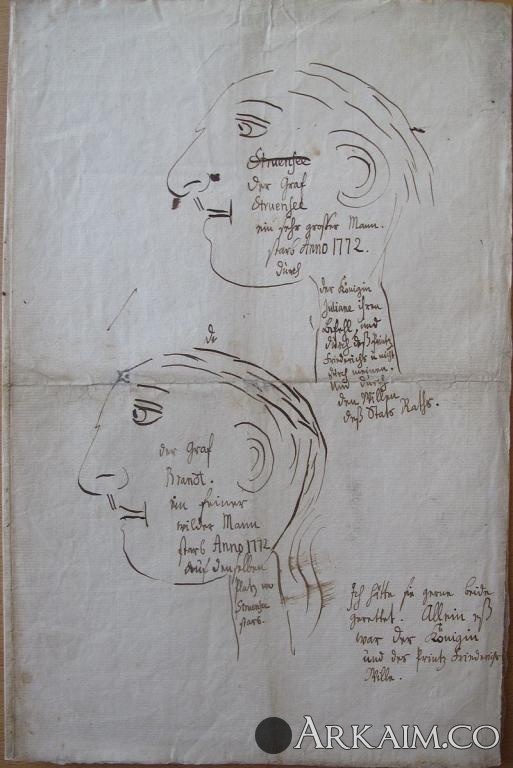 Struensee
der Graf
Struensee
ein sehr grosser Mann.
starb Anno 1772.
durch
der Königin
Juliane ihren
Befehl, und
durch deß Printz
Friederichs u nicht
durch meinen.
Und durch
den Willen
deß Stats Raths.
de
der Graf
Brandt.
ein feiner
wilder Mann
starb Anno 1772
auf denselben
Platz wo
Struensee
starb.
Ich hätte sie gerne beide
gerettet. Allein eß
war der Königin
und des Printz Friederichs
Wille.
ARKAIM.CO